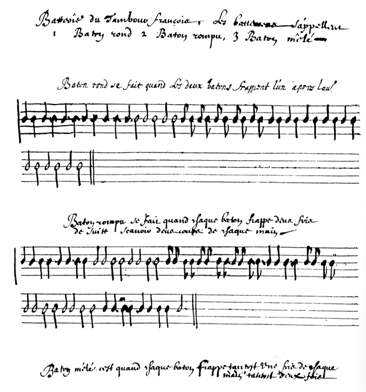 Batterie du Tambour françois, Les batteries s'appellent
1 Baton rond 2 Baton rompu, 3 Baton mêlé
Baton rond se fait quand Les deux batons frappent l'un apres
Baton rompu se fait quand chaque baton frappe deux fois
de suitte scavoir deux coups de chaque main
Baton mêlé c'est quand chaque baton frappe tantost Une fois de chaque
main tantost deux fois